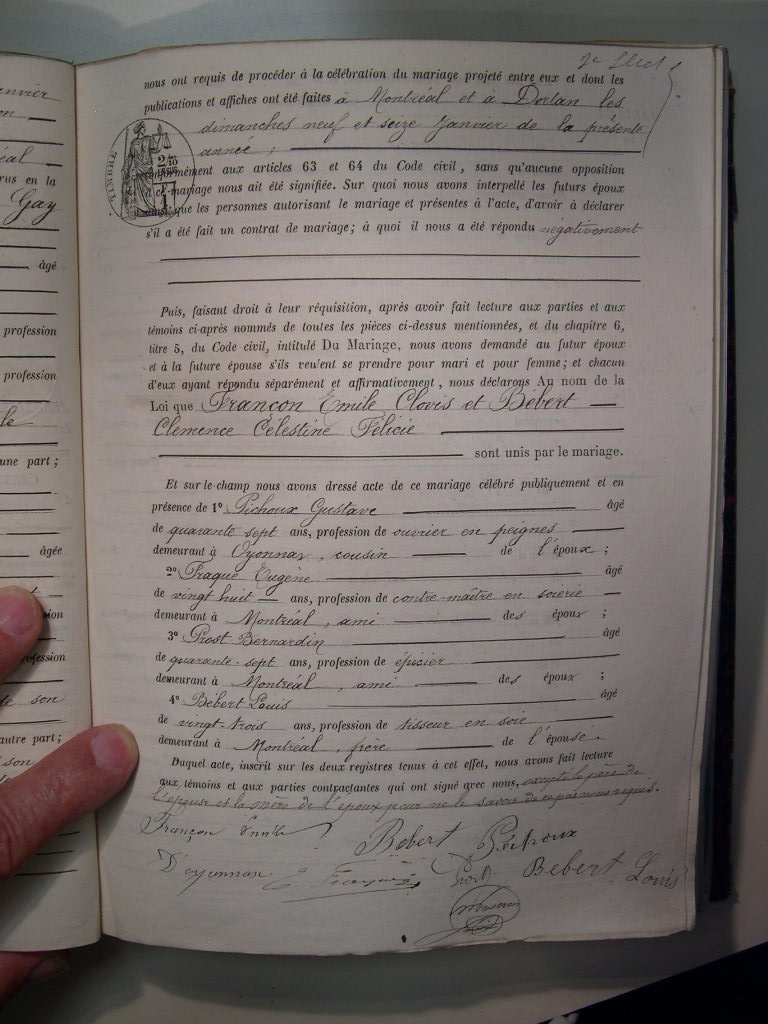 anvier
éal
rus en la
Gay
âgé
profession
profession
une part ;
âgée
autre part ;
nous ont requis de procéder à la célébration du mariage projeté entre eux et dont les
publications et affiches ont été faites à Montréal et à Dortan les
dimanches neuf et seize Janvier de la présente
année ;
TIMBRE
conformément aux articles 63 et 64 du Code civil, sans qu'aucune opposition
à ce mariage nous ait été signifiée. Sur quoi nous avons interpellé les futurs époux
ainsi que les personnes autorisant le mariage et présentes à l'acte, d'avoir à déclarer
s'il a été fait un contrat de mariage ; à quoi il nous a été répondu négativement
Puis, faisant droit à leur réquisition, après avoir fait lecture aux parties et aux
témoins ci-après nommés de toutes les pièces ci-dessus mentionnées, et du chapitre 6,
titre 5, du Code civil, intitulé Du Mariage, nous avons demandé au futur époux
et à la future épouse s'ils veulent se prendre pour mari et pour femme ; et chacun
d'eux ayant répondu séparément et affirmativement, nous déclarons Au nom de la
Loi que Françon Emile Clovis et Bébert
Clemence Célestine Félicie
sont unis par le mariage.
Et sur le champ nous avons dressé acte de ce mariage célébré publiquement et en
présence de 1º Pichoux Gustave âgé
de quarante sept ans, profession de ouvrier en peignes
demeurant à Oyonnax, cousin de l'époux ;
2º Fraque Eugène âgé
de vingt huit ans, profession de contre-maître en soierie
demeurant à Montréal, ami des époux ;
3º Prost Bernardin âgé
de quarante-sept ans, profession de épicier
demeurant à Montréal, ami des époux ;
4º Bébert Louis âgé
de vingt-trois ans, profession de tisseur en soie
demeurant à Montréal, frère de l'épouse.
Duquel acte, inscrit sur les deux registres tenus à cet effet, nous avons fait lecture
aux témoins et aux parties contractantes qui ont signé avec nous, excepté le père de
l'épouse et la mère de l'époux pour ne le savoir de ce par nous requis.
Françon Emile Bébert Pichoux
D'oyonnax E Fraque Prost Bebert Louis